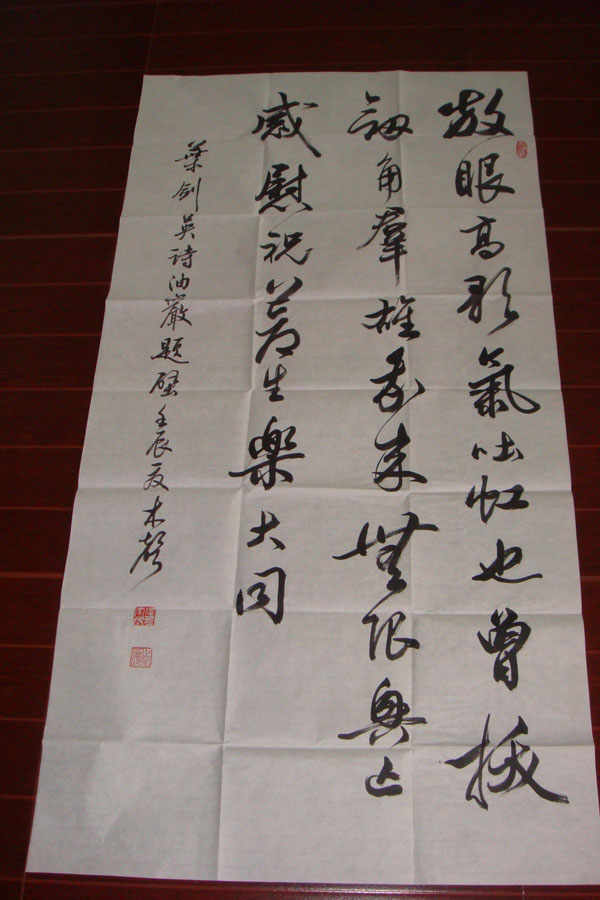 放眼高歌氣吐虹也曾拔
劔角羣雄我來無限興亡
感慰祝蒼生樂大同
葉剑英詩油巖題壁壬辰夏木聲